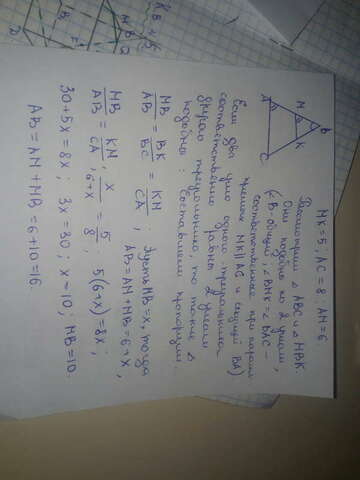 MK=5, AC=8; AM=6
Рассмотрим △ABC и △MBK.
Они подобны по 2 углам,
(∠B-общий, ∠BMK=∠BAC -
соответственные при парал.
прямых MK||AC и секущей BA)
Если два угла одного треугольника
соответственно равны 2 углам
другого треугольника, то такие △
подобны. Составляем пропорцию.
MB/AB = BK/BC = KM/CA. Пусть MB=x, тогда
AB=AM+MB=6+x,
MB/AB = KM/CA; x/6+x = 5/8; 5(6+x)=8x;
30+5x=8x; 3x=30; x=10; MB=10.
AB=AM+MB=6+10=16.
B
M
K
A
C